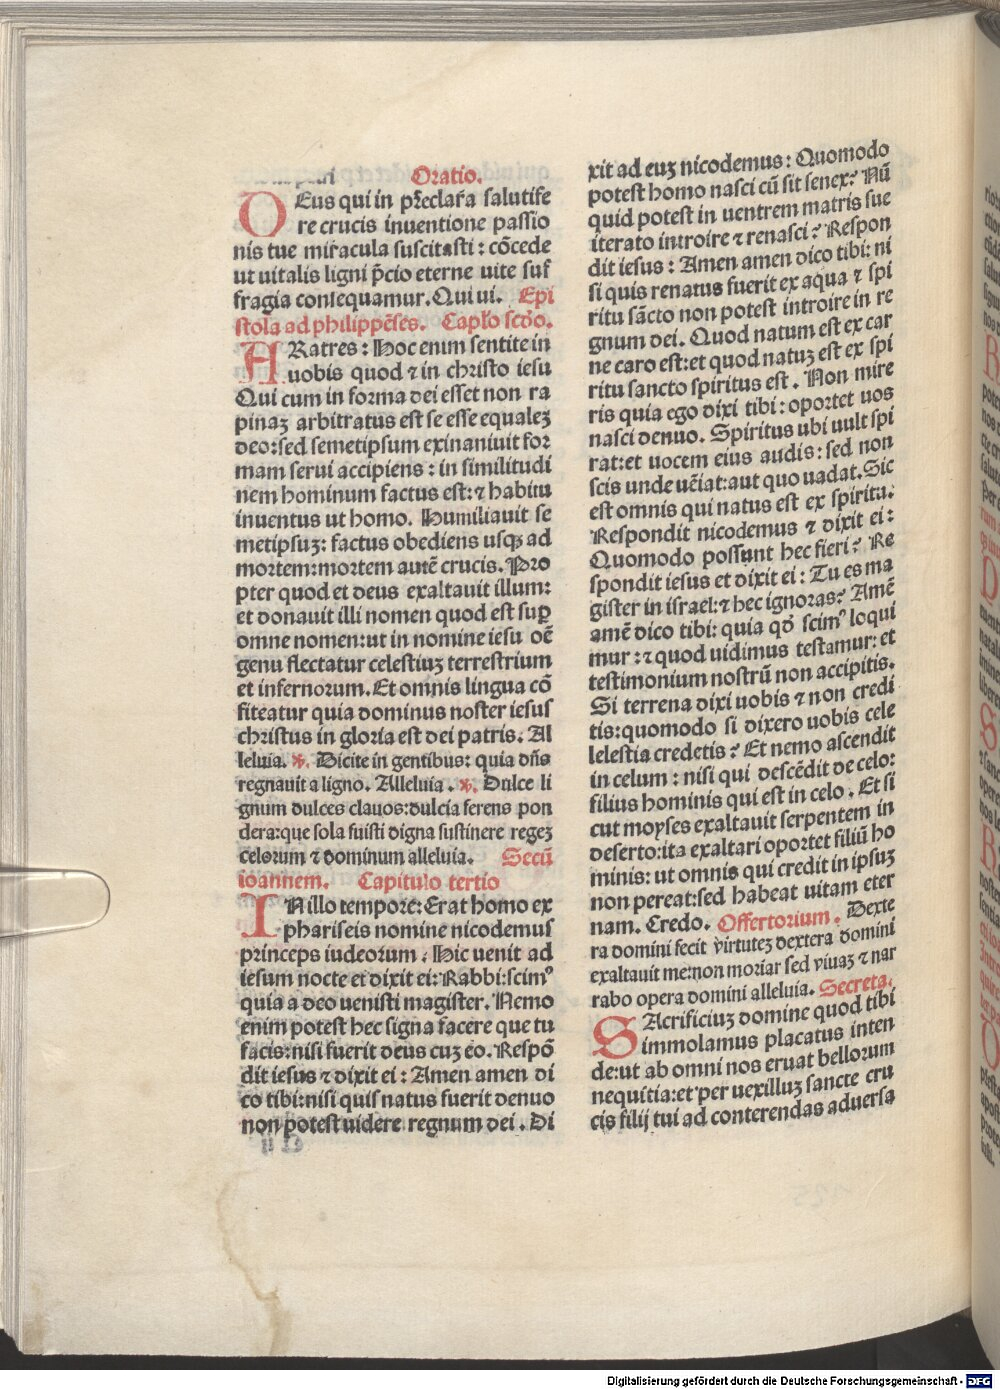 Oratio.
DEus qui in p̄eclara salutife
re crucis inuentione passio
nis tue miracula suscitasti : cōcede
ut uitalis ligni p̄cio eterne uite suf
fragia consequamur. Qui ui. Epi
stola ad philippēses. Caplo scdo.
FRatres : Hoc enim sentite in
uobis quod ⁊ in christo iesu
Qui cum in forma dei esset non ra
pinaꝫ arbitratus est se esse equaleꝫ
deo: sed semetipsum exinaniuit for
mam serui accipiens : in similitudi
nem hominum factus est: ⁊ habitu
inuentus ut homo. Humiliauit se
metipsuꝫ: factus obediens usqꝫ ad
mortem: mortem autē crucis. Pro
pter quod et deus exaltauit illum:
et donauit illi nomen quod est suꝑ
omne nomen: ut in nomine iesu oē
genu flectatur celestiuꝫ terrestrium
et infernorum. Et omnis lingua cō
fiteatur quia dominus noster iesus
christus in gloria est dei patris. Al
leluia. ℣. Dicite in gentibus: quia dn̄s
regnauit a ligno. Alleluia . ℣. Dulce li
gnum dulces clauos: dulcia ferens pon
dera: que sola fuisti digna sustinere regeꝫ
celorum ⁊ dominum alleluia. Secū
ioannem. Capitulo tertio
IN illo tempore: Erat homo ex
phariseis nomine nicodemus
princeps iudeorum : Hic uenit ad
iesum nocte et dixit ei: Rabbi: scimꝰ
quia a deo uenisti magister. Nemo
enim potest hec signa facere que tu
facis: nisi fuerit deus cuꝫ eo. Respō
dit iesus ⁊ dixit ei : Amen amen di
co tibi: nisi quis natus fuerit denuo
non potest uidere regnum dei . Di
xit ad euꝫ nicodemus : Quomodo
potest homo nasci cū sit senex? Nū
quid potest in uentrem matris sue
iterato introire ⁊ renasci? Respon
dit iesus : Amen amen dico tibi: ni
si quis renatus fuerit ex aqua ⁊ spi
ritu sācto non potest introire in re
gnum dei. Quod natum est ex car
ne caro est: et quod natuꝫ est ex spi
ritu sancto spiritus est . Non mire
ris quia ego dixi tibi : oportet uos
nasci denuo. Spiritus ubi uult spi
rat: et uocem eius audis: sed non
scis unde uēiat: aut quo uadat. Sic
est omnis qui natus est ex spiritu:
Respondit nicodemus ⁊ dixit ei :
Quomodo possunt hec fieri? Re
spondit iesus et dixit ei : Tu es ma
gister in israel: ⁊ hec ignoras? Amē
amē dico tibi: quia qd̄ scimꝰ loqui
mur : ⁊ quod uidimus testamur: et
testimonium nostrū non accipitis.
Si terrena dixi uobis ⁊ non credi
tis: quomodo si dixero uobis cele
lelestia credetis? Et nemo ascendit
in celum : nisi qui descēdit de celo:
filius hominis qui est in celo . Et si
cut moyses exaltauit serpentem in
deserto: ita exaltari oportet filiū ho
minis: ut omnis qui credit in ipsuꝫ
non pereat: sed habeat uitam eter
nam. Credo. Offertorium . Dexte
ra domini fecit virtuteꝫ dextera domini
exaltauit me: non moriar sed viuaꝫ ⁊ nar
rabo opera domini alleluia. Secreta.
SAcrificiuꝫ domine quod tibi
immolamus placatus inten
de: ut ab omni nos eruat bellorum
nequitia: et per uexilluꝫ sancte cru
cis filij tui ad conterendas aduersa
Digitalisierung gefördert durch die Deutsche Forschungsgemeinschaft - DFG